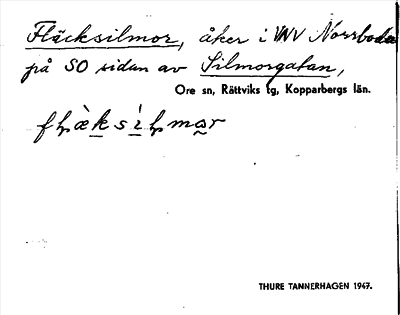 Fläcksilmor, åker i VNV Norrboda
på SO sidan av Silmorgatan,
Ore sn, Rättviks tg, Kopparbergs län.
THURE TANNERHAGEN 1947.